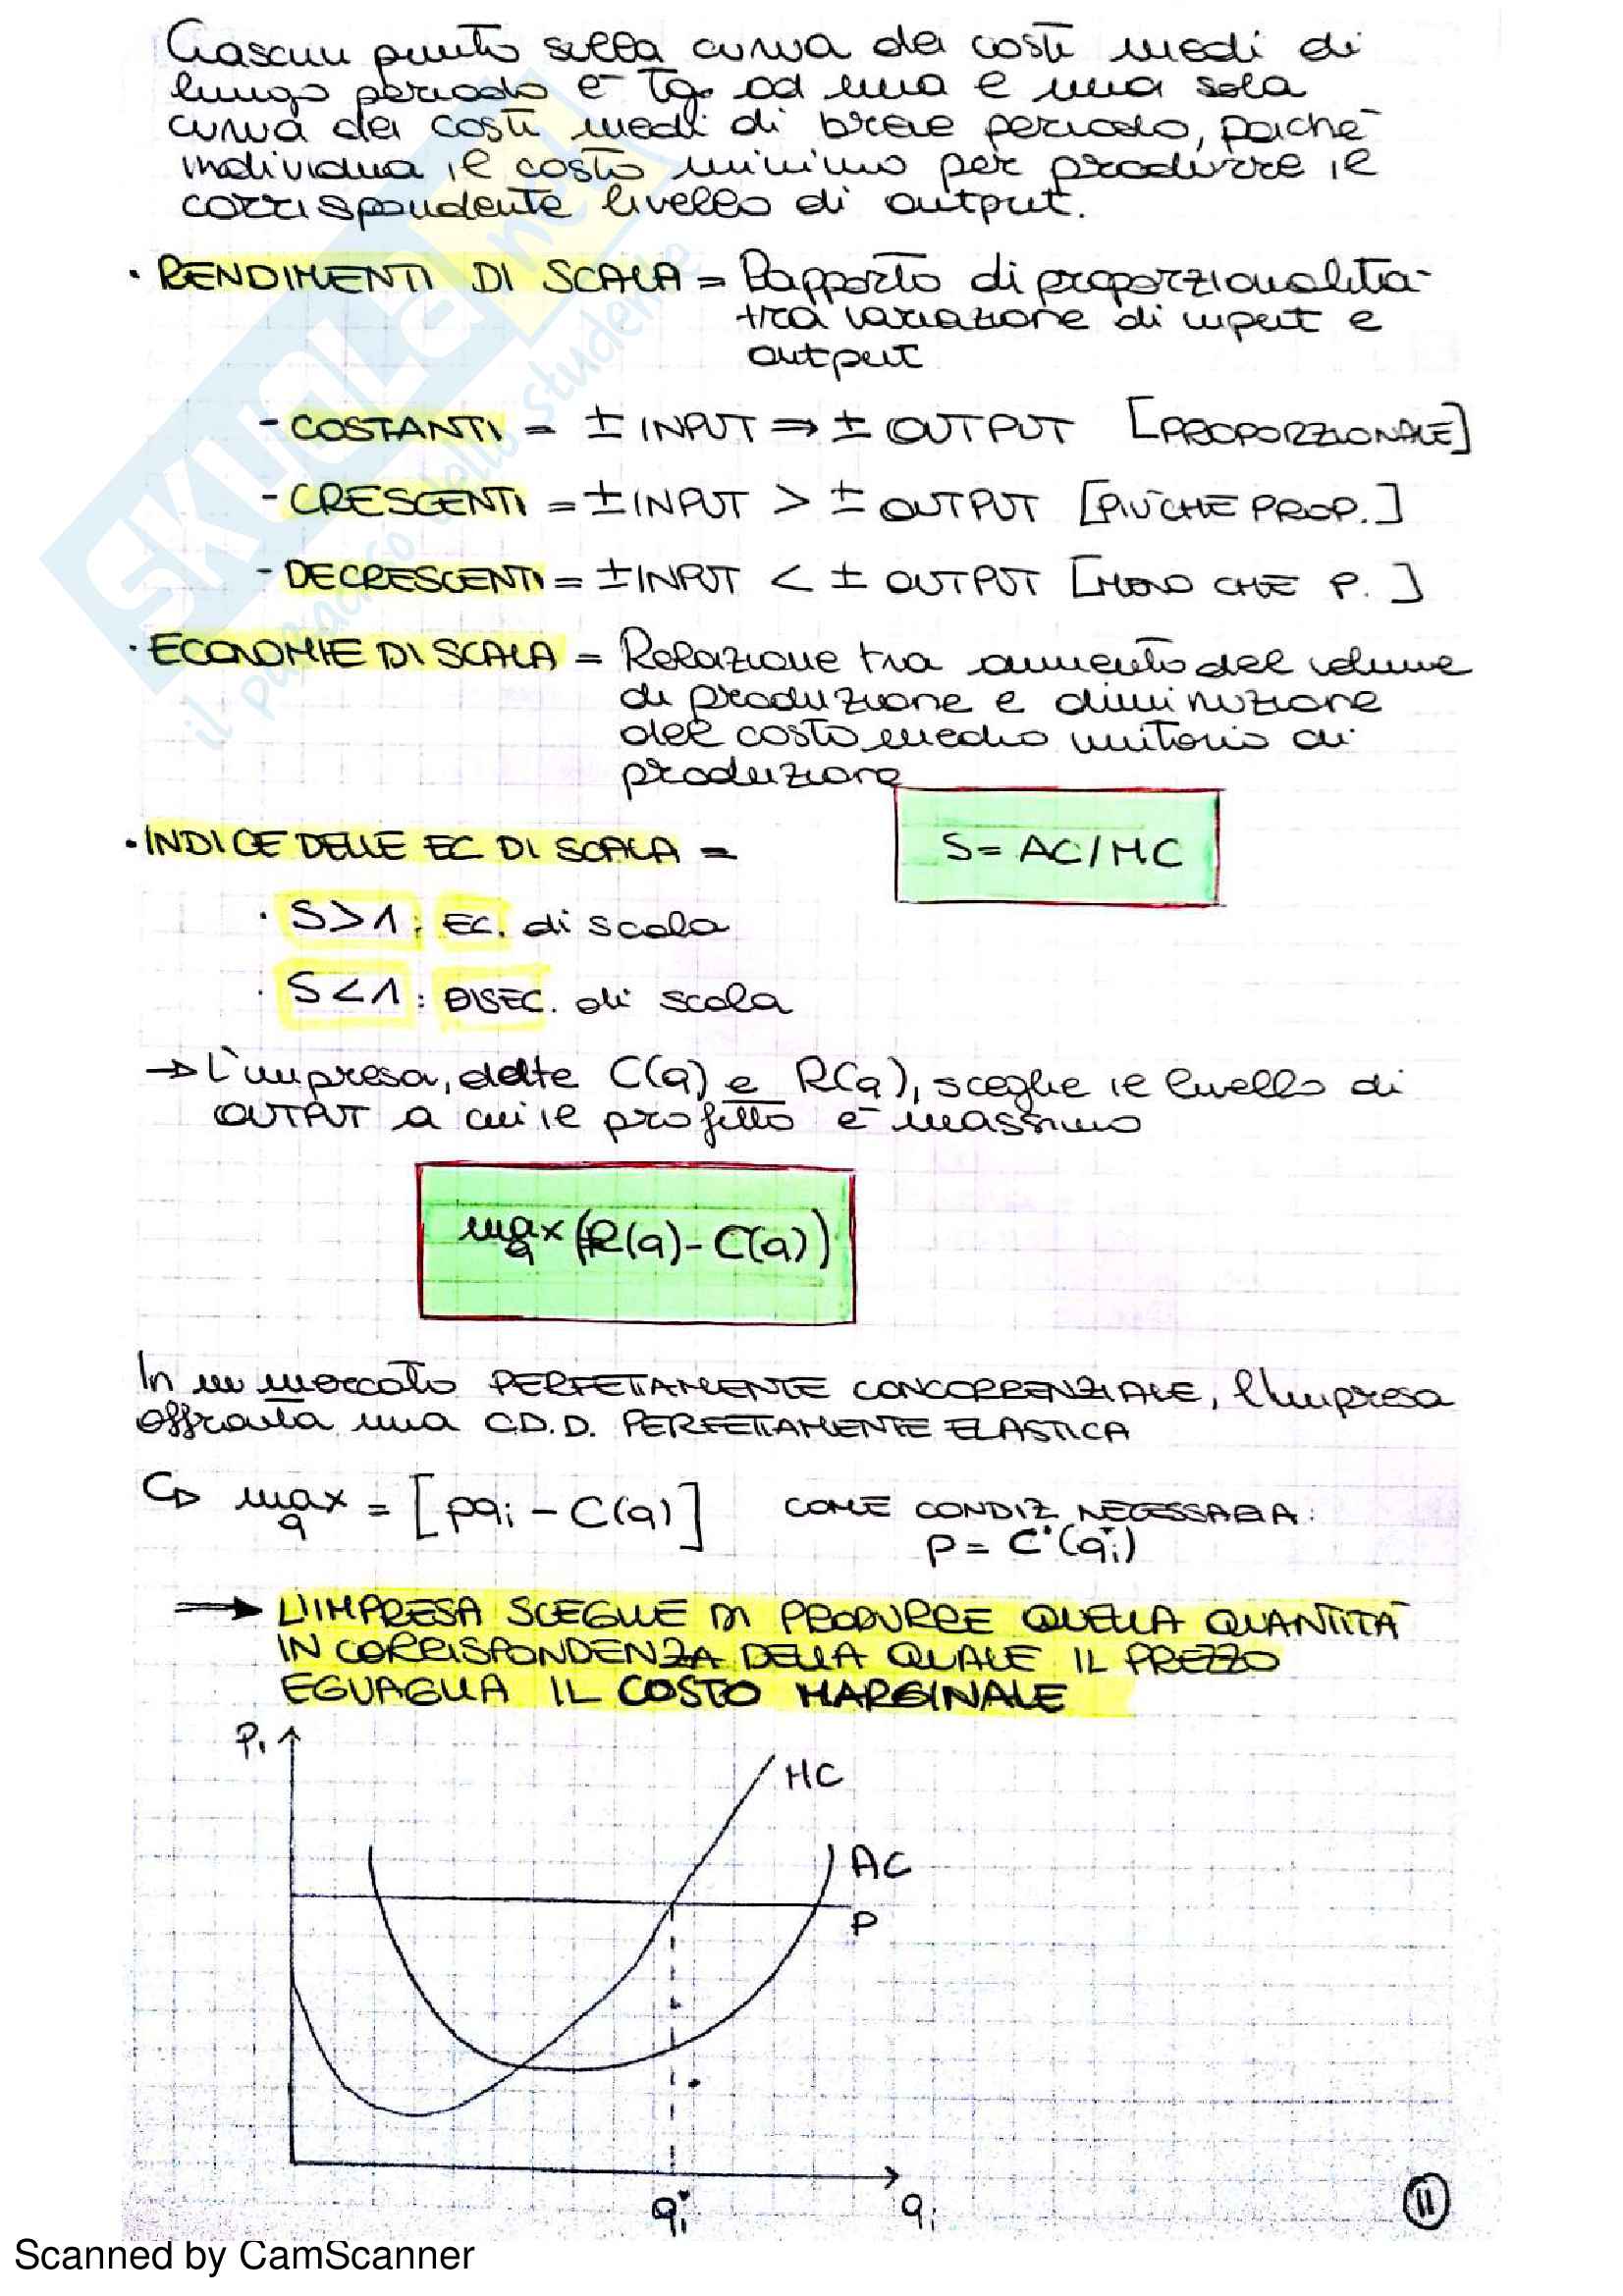 Ciascun punto sulla curva dei costi medi di
lungo periodo è Tg. ad una e una sola
curva dei costi medi di breve periodo, poiché
individua il costo minimo per produrre il
corrispondente livello di output.
• RENDIMENTI DI SCALA = Rapporto di proporzionalità
tra variazione di input e
output
- COSTANTI = ± INPUT ⇒ ± OUTPUT [PROPORZIONALE]
- CRESCENTI = ± INPUT > ± OUTPUT [PIÙ CHE PROP.]
- DECRESCENTI = ± INPUT < ± OUTPUT [MENO CHE P.]
• ECONOMIE DI SCALA = Relazione tra aumento del volume
di produzione e diminuzione
del costo medio unitario di
produzione
• INDICE DELLE EC DI SCALA =
S = AC/MC
• S>1: EC. di scala
• S<1: DISEC. di scala
→ L'impresa, date C(q) e R(q), sceglie il livello di
OUTPUT a cui il profitto è massimo
max (R(q) - C(q))
q
In un mercato PERFETTAMENTE CONCORRENZIALE, l'impresa
affronta una C.D.D. PERFETTAMENTE ELASTICA
↳ max = [pqi - C(q)] COME CONDIZ. NECESSARIA:
q
P = C'(qi*)
⇒ L'IMPRESA SCEGLIE DI PRODURRE QUELLA QUANTITÀ
IN CORRISPONDENZA DELLA QUALE IL PREZZO
EGUAGLIA IL COSTO MARGINALE
Pi
MC
AC
P
qi*
qi
11
SKUOLA.net
il paradiso dello studente
Scanned by CamScanner